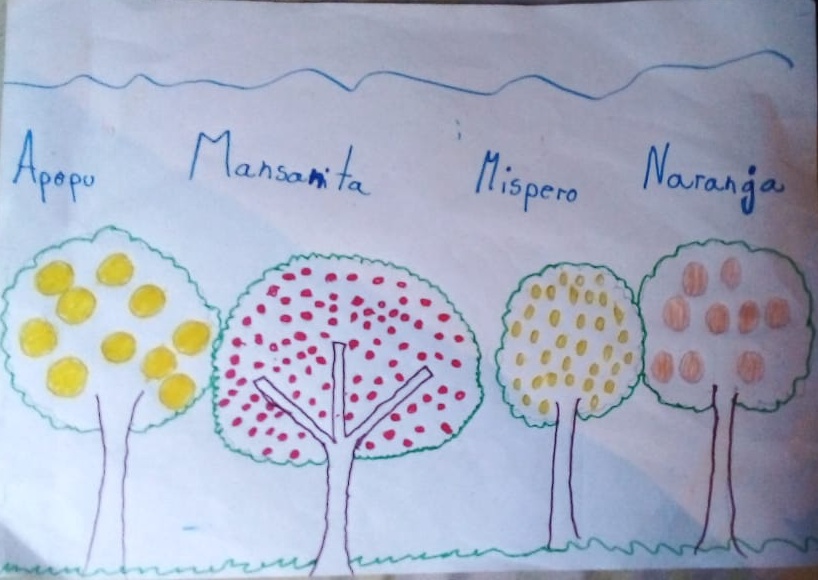 Apopu Mansanita Mispero Naranja